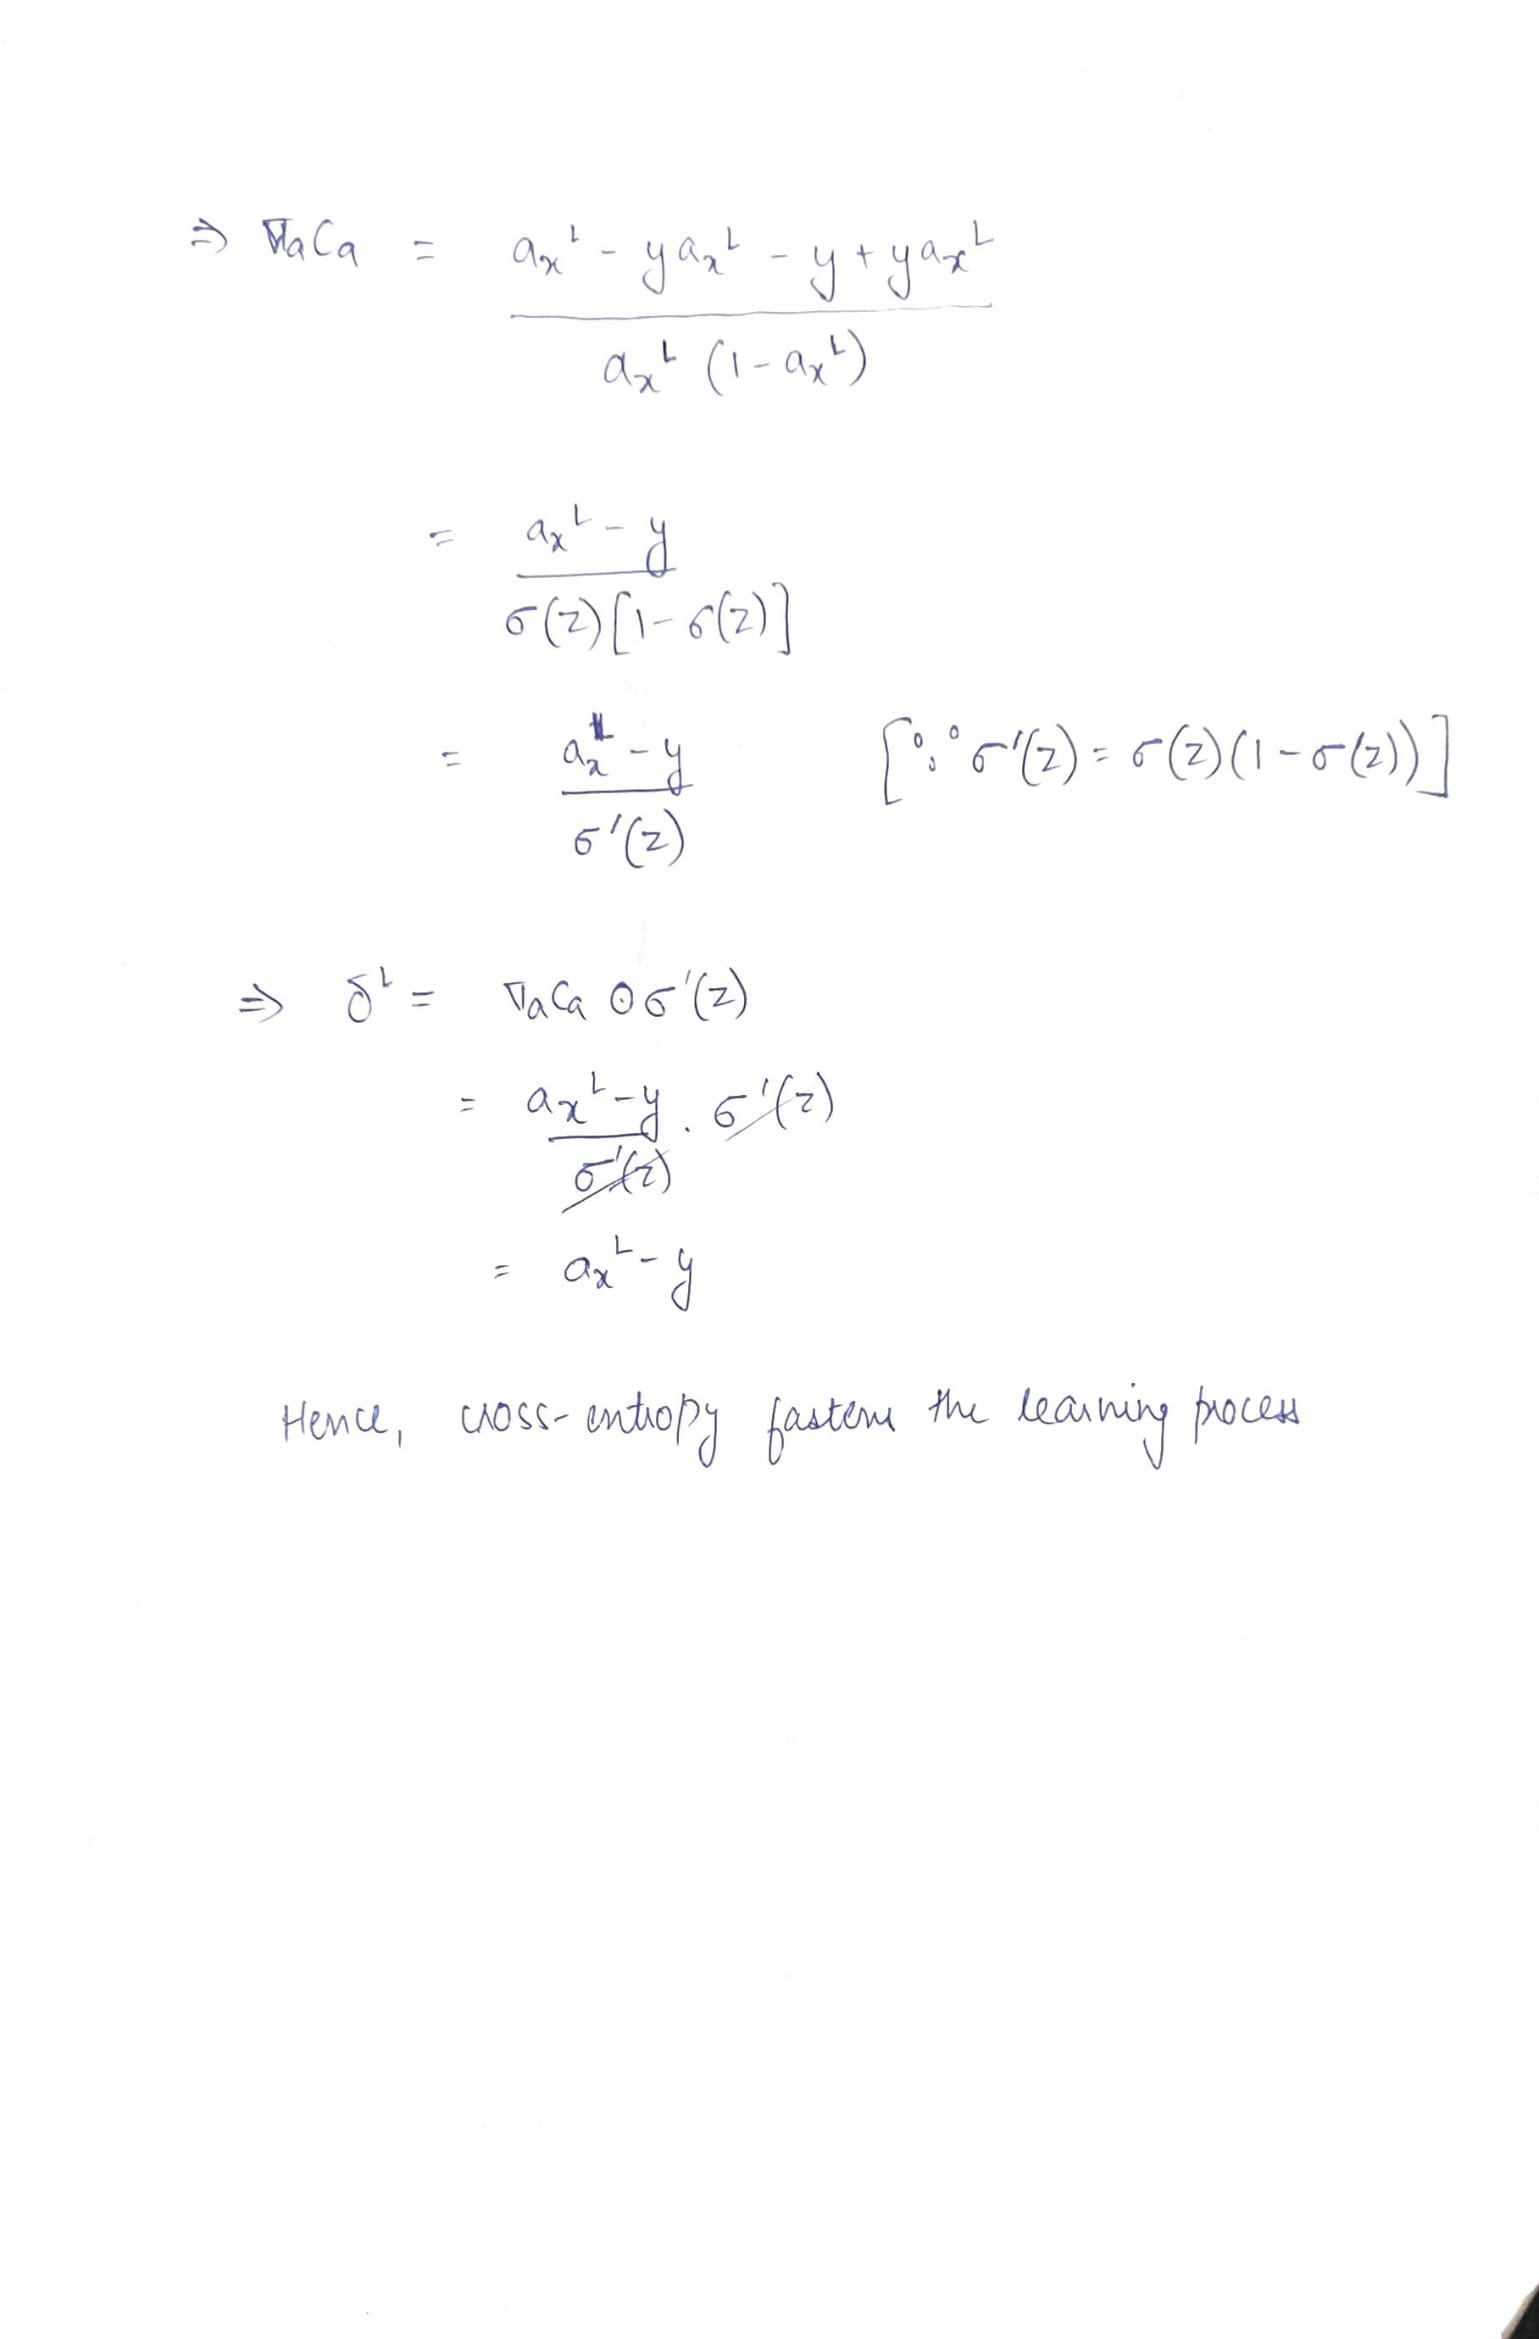 ⇒ ∇aCa = (aₓᴸ - yaₓᴸ - y + yaₓᴸ) / (aₓᴸ (1 - aₓᴸ))
= (aₓᴸ - y) / (σ(z)[1 - σ(z)])
= (aₓᴸ - y) / σ'(z) [∵ σ'(z) = σ(z)(1 - σ(z))]
⇒ δᴸ = ∇aCa ⊙ σ'(z)
= (aₓᴸ - y) / σ'(z) . σ'(z)
= aₓᴸ - y
Hence, cross-entropy fastens the learning process